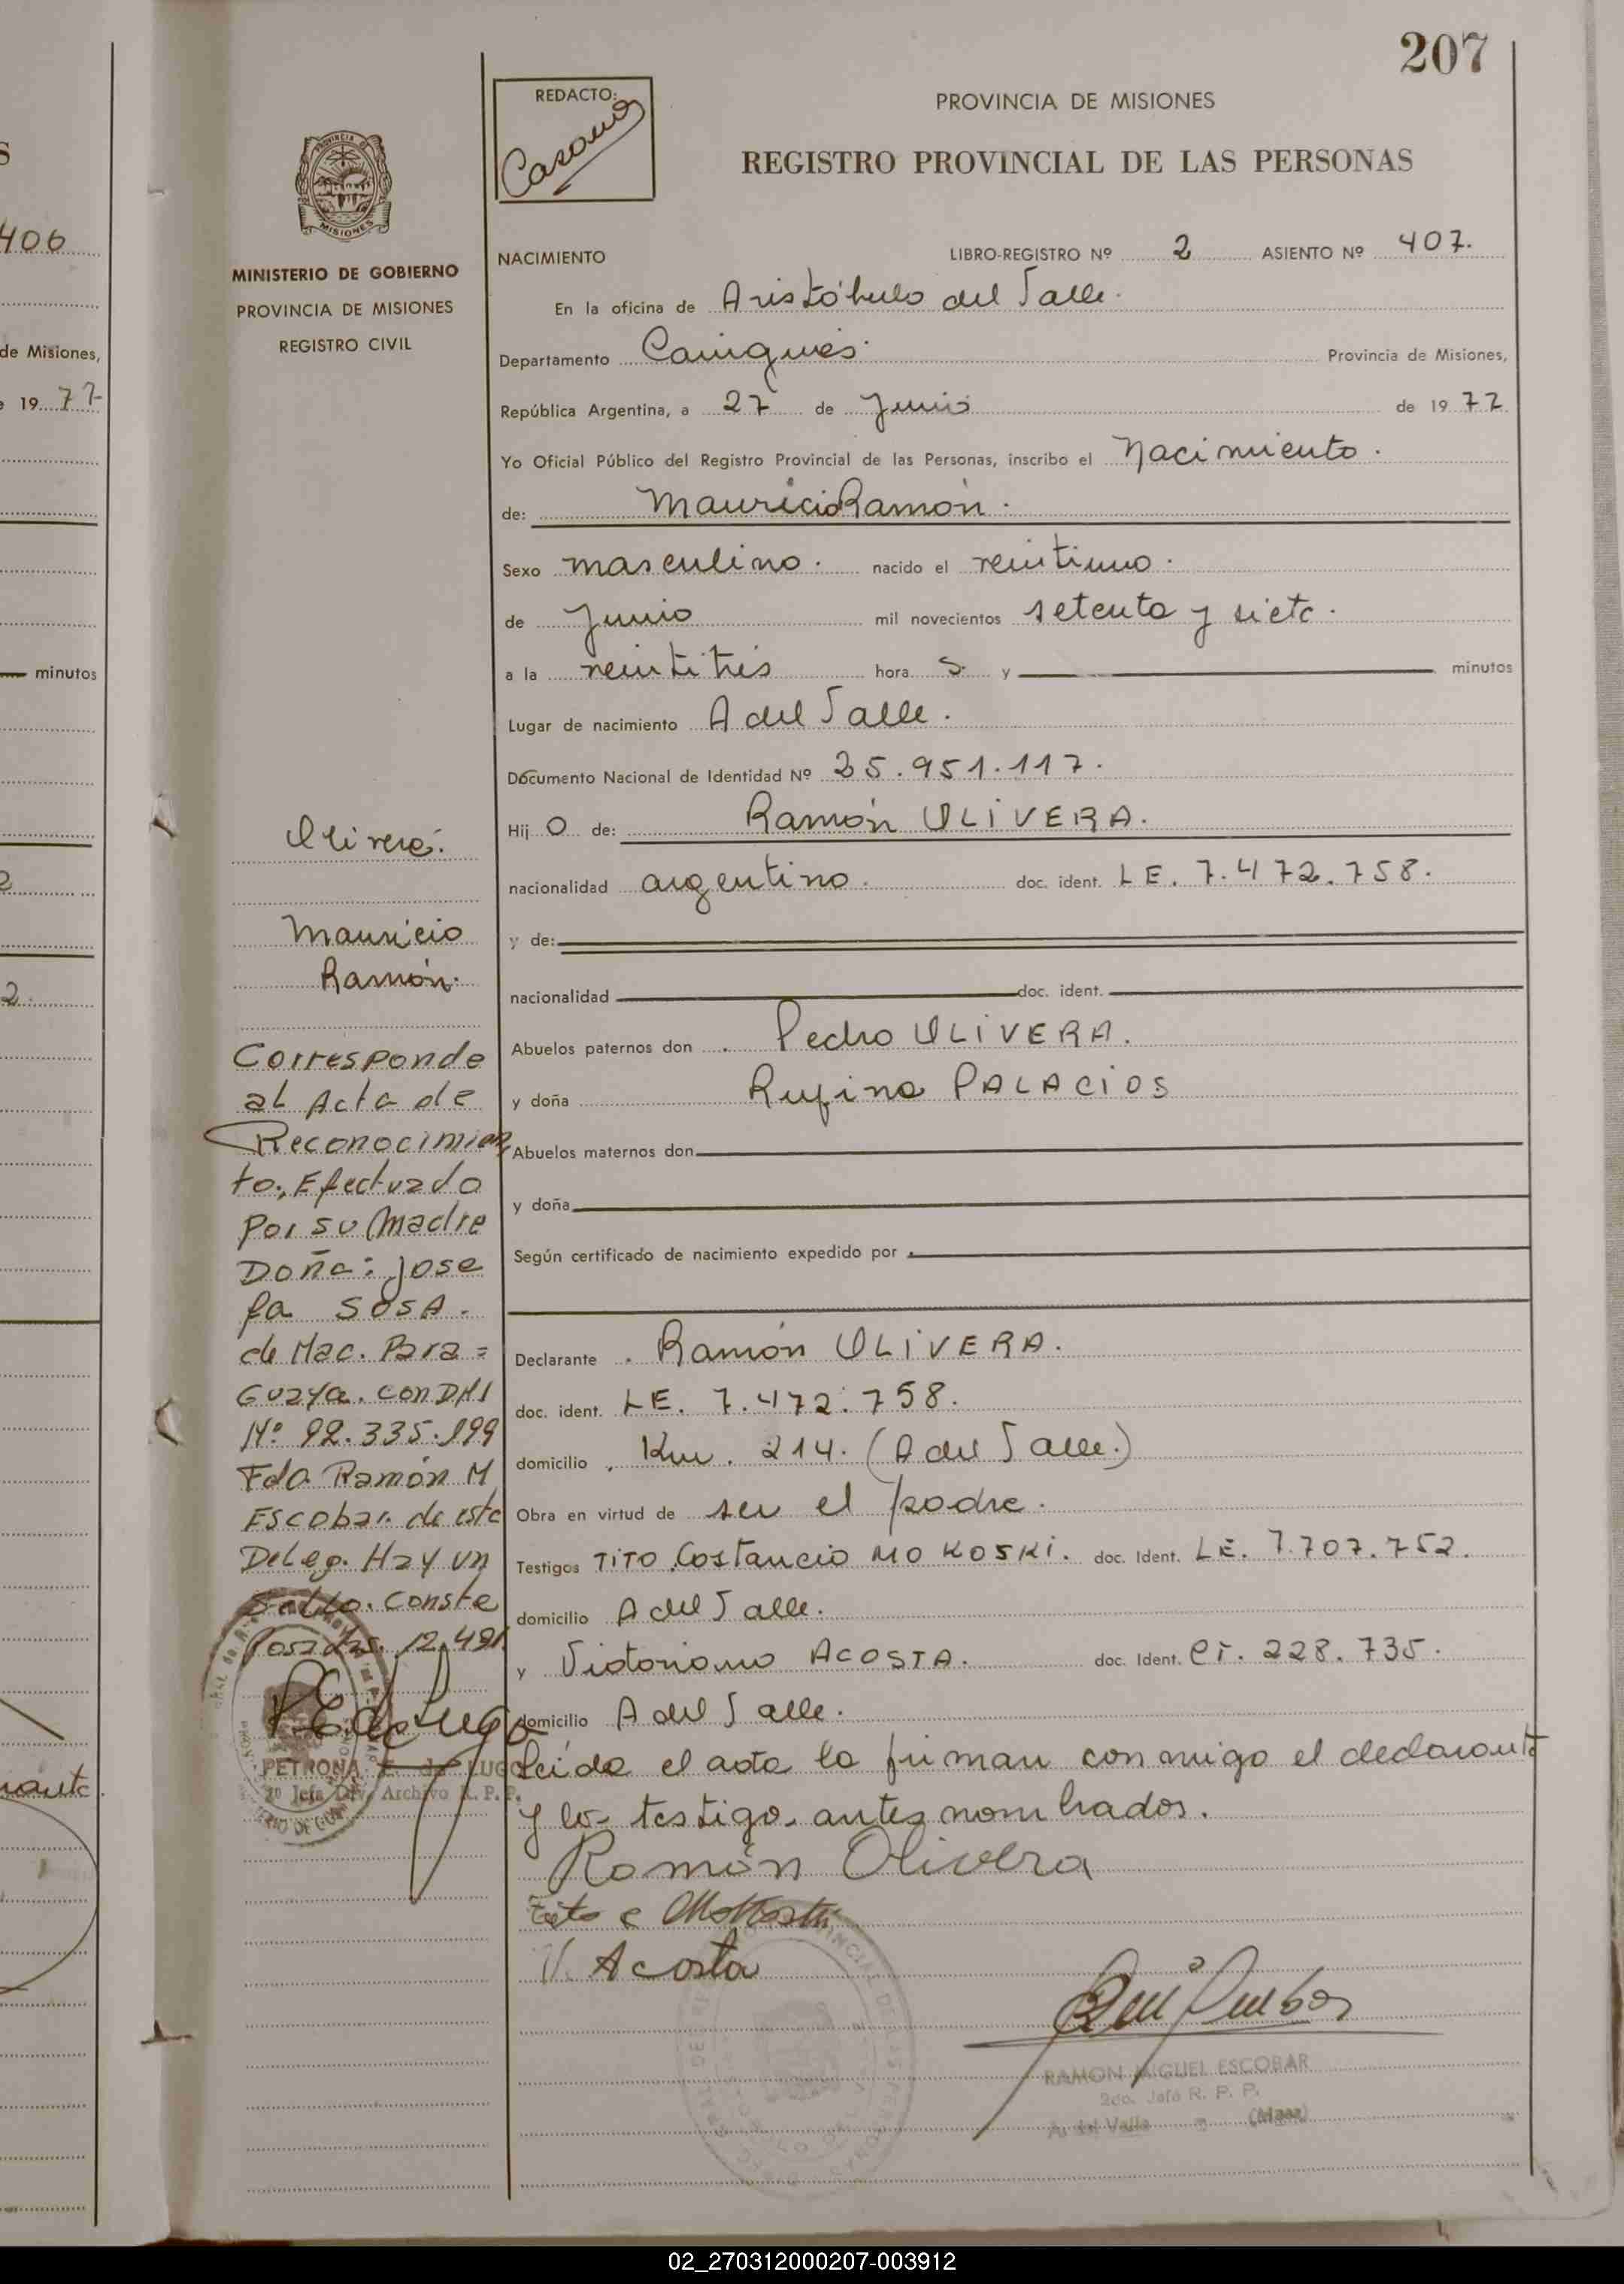 207
S
406
de Misiones,
19 77
minutos
2
2.
REDACTO:
PROVINCIA DE MISIONES
REGISTRO PROVINCIAL DE LAS PERSONAS
MINISTERIO DE GOBIERNO
PROVINCIA DE MISIONES
REGISTRO CIVIL
NACIMIENTO LIBRO-REGISTRO Nº 2 ASIENTO Nº 407.
En la oficina de Aristóbulo del Valle.
Departamento Cainguás. Provincia de Misiones,
República Argentina, a 27 de Junio de 19 77
Yo Oficial Público del Registro Provincial de las Personas, inscribo el Nacimiento.
de: Mauricio Ramón.
Sexo masculino. nacido el veintiuno.
de Junio mil novecientos setenta y siete.
a la veintitrés hora s y minutos
Lugar de nacimiento A del Valle.
Documento Nacional de Identidad Nº 25.951.117.
Hij o de: Ramón OLIVERA.
nacionalidad argentino. doc. ident. LE. 7.472.758.
y de:
nacionalidad doc. ident.
Abuelos paternos don Pedro OLIVERA.
y doña Rufina PALACIOS
Abuelos maternos don
y doña
Según certificado de nacimiento expedido por
Declarante Ramón OLIVERA.
doc. ident. LE. 7.472.758.
domicilio Km. 214. (A del Valle.)
Obra en virtud de ser el padre.
Testigos TITO Costancio MOKOSKI. doc. Ident. LE. 7.707.752.
domicilio A del Valle.
y Victoriano ACOSTA. doc. Ident. CI. 228.735.
domicilio A del Valle.
Leída el acta la firman conmigo el declarante
y los testigos antes nombrados.
Ramón Olivera
V. Acosta
RAMON MIGUEL ESCOBAR
2do. Jefe R. P. P.
A. del Valle (Mnes)
Olivera.
Mauricio
Ramón.
Corresponde
al Acta de
Reconocimien
to, Efectuado
Por su Madre
Doña: Jose
fa SOSA.
de Nac. Para=
Guaya. con DNI
Nº 92.335.199
Fdo Ramón M
Escobar. de esta
Deleg. Hay un
Sello. Conste
Posadas. 12.4.91
PETRONA E. de LUGO
2º Jefa Div. Archivo R. P. P.
02_270312000207-003912